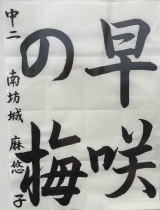 早咲
の梅
中二 南坊城 麻悠子